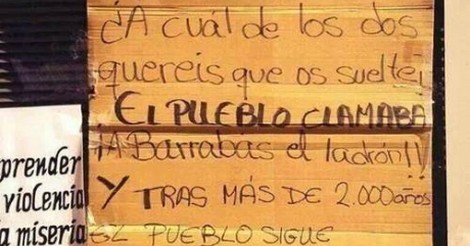 ¿A cuál de los dos
quereis que os suelte¡
EL PUEBLO CLAMABA
¡A Barrabás el ladrón!!
Y TRAS MÁS DE 2.000 años
EL PUEBLO SIGUE
prender
violencia
a miseria